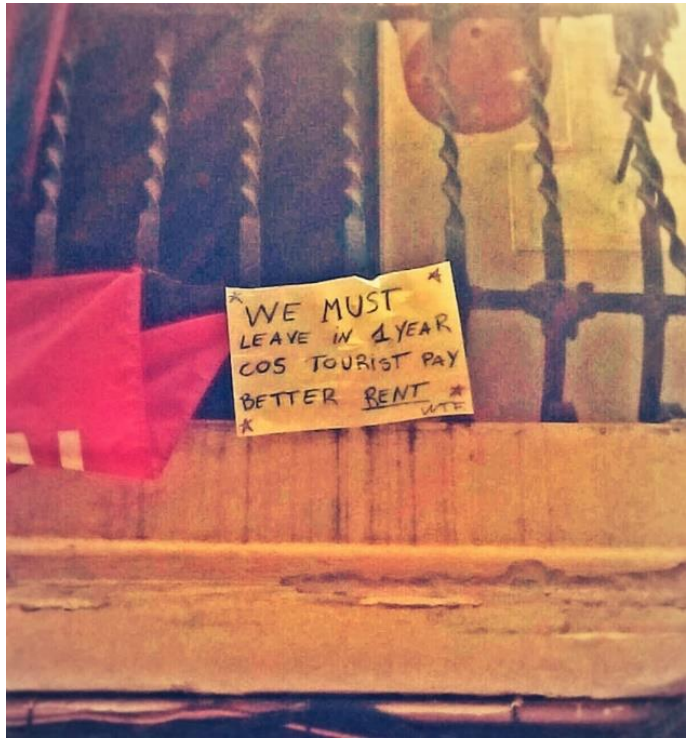 WE MUST
LEAVE IN 1 YEAR
COS TOURIST PAY
BETTER RENT
WTF